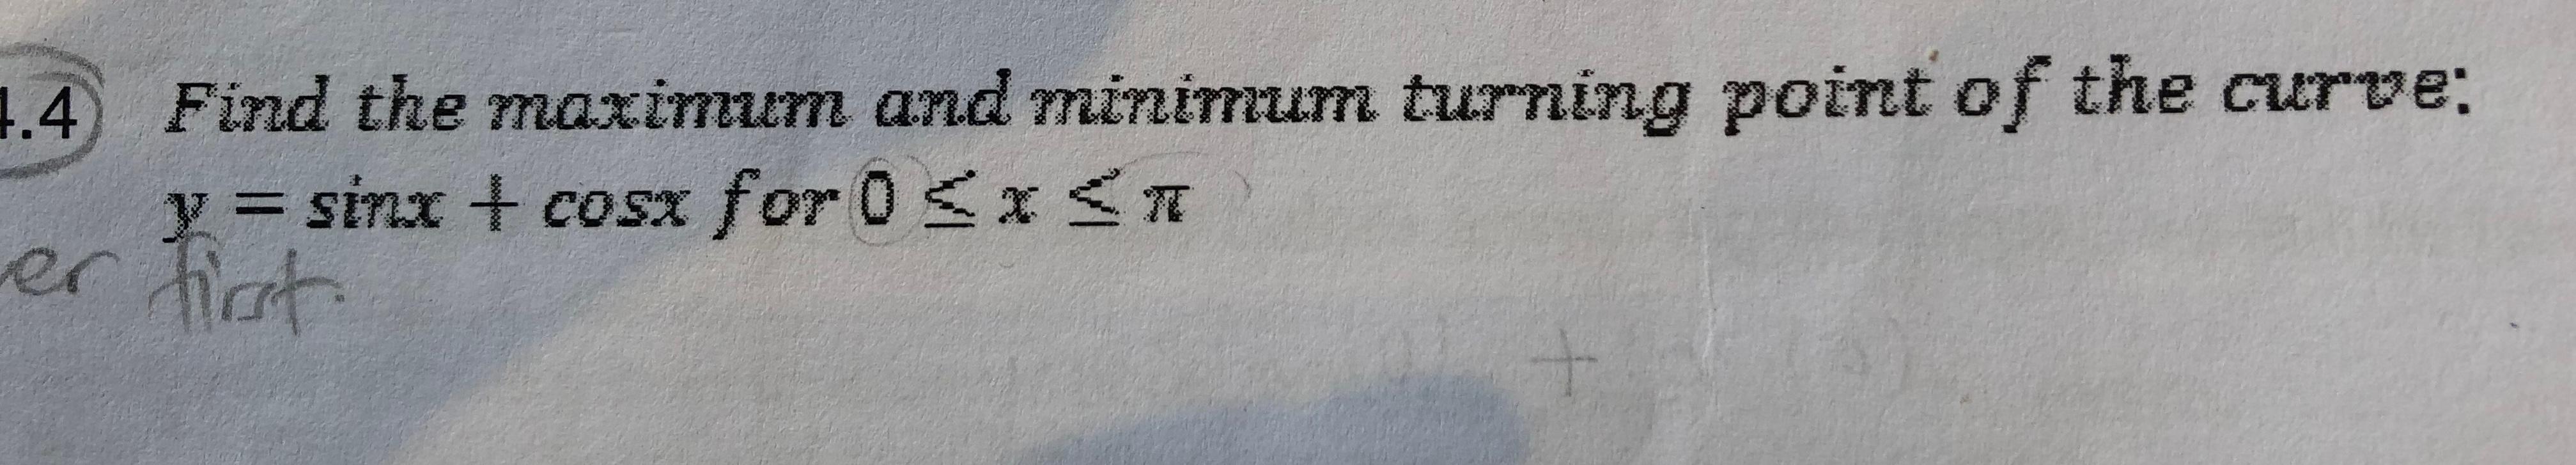 .4 Find the maximum and minimum turning point of the curve:
y = sinx + cosx for 0 ≤ x ≤ π
er first.